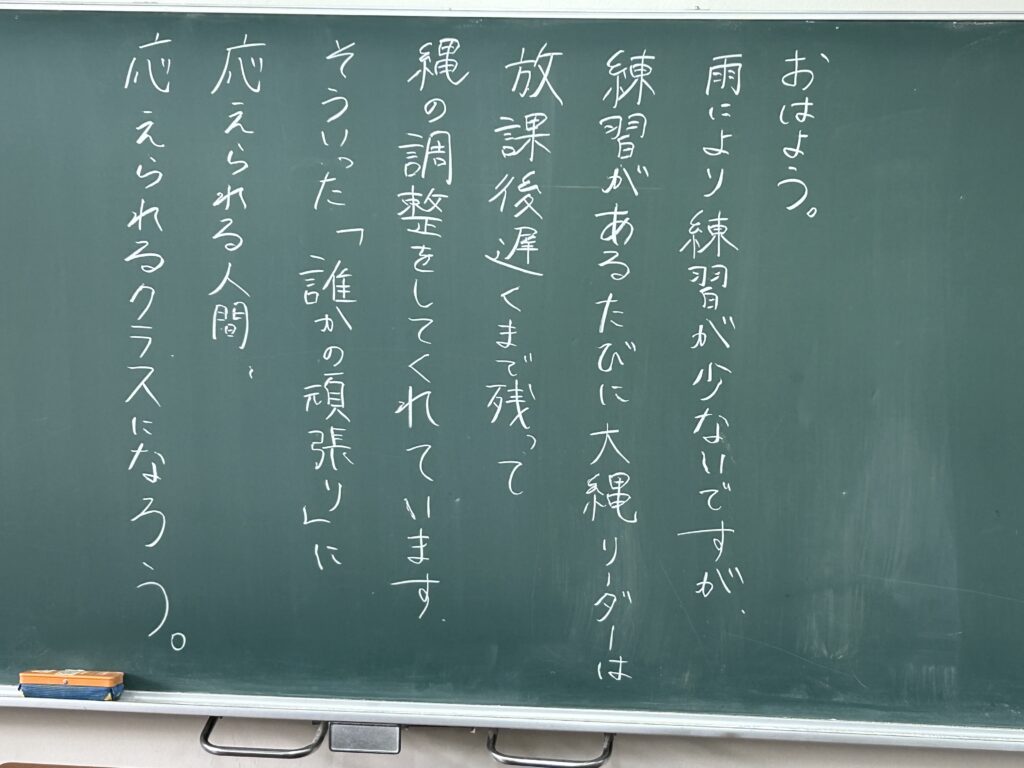 おはよう。
雨により練習が少ないですが、
練習があるたびに大縄リーダーは
放課後遅くまで残って
縄の調整をしてくれています。
そういった「誰かの頑張り」に
応えられる人間、
応えられるクラスになろう。